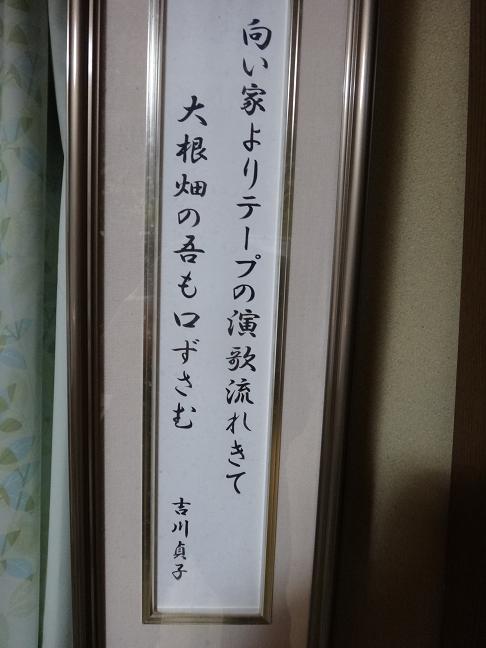 向い家よりテープの演歌流れきて
大根畑の吾も口ずさむ
吉川貞子